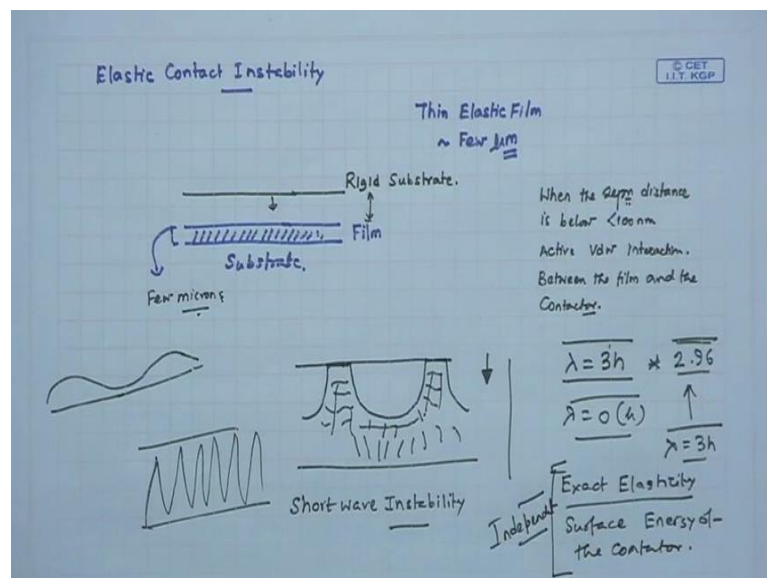 Elastic Contact Instability
© CET
I.I.T. KGP
Thin Elastic Film
~ Few μm
Rigid Substrate.
Film
Substrate.
Few microns
When the sepn distance
is below <100nm
Active VdW Interaction.
Between the film and the
Contactor.
λ = 3h * 2.96
λ = O(h)
λ = 3h
Short wave Instability
Independent
Exact Elasticity
Surface Energy of
the Contactor.